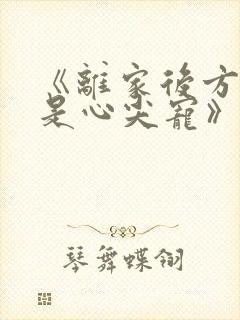 《離家後方
是心尖寵》
琴舞蝶翎